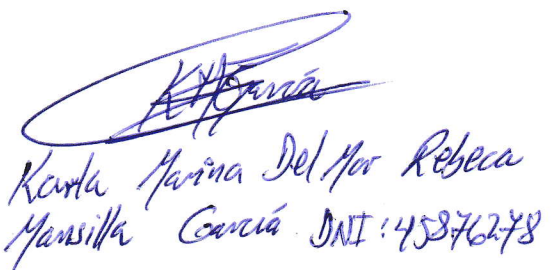 KMGarcía
Karla Marina Del Mar Rebeca
Mansilla García DNI: 45876278